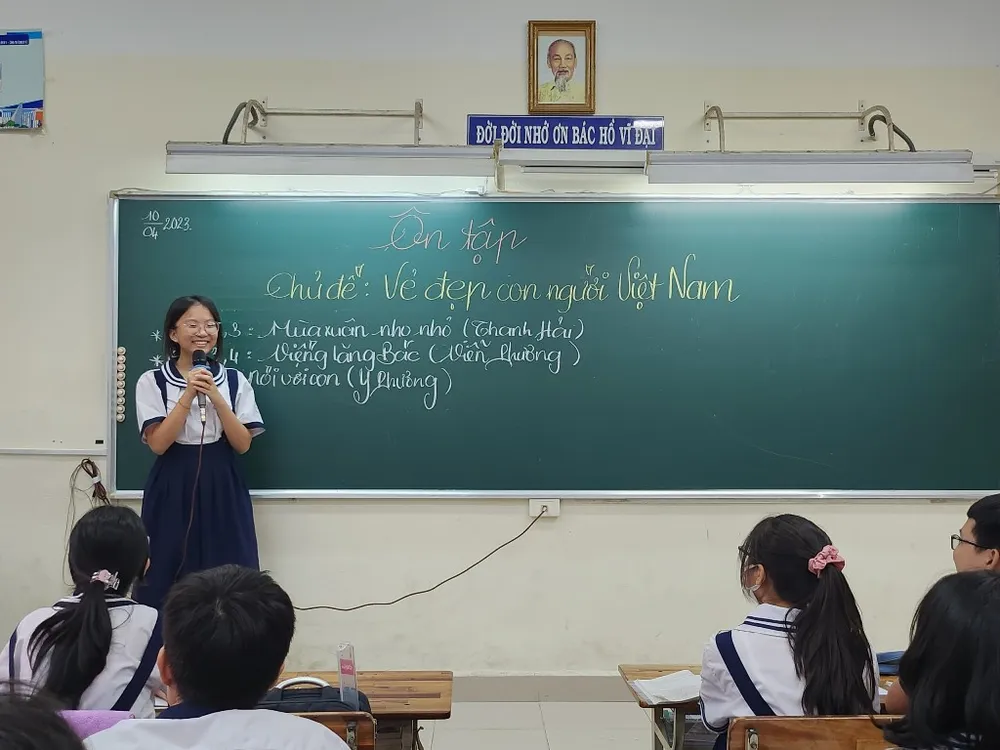 ĐỜI ĐỜI NHỚ ƠN BÁC HỒ VĨ ĐẠI
10/04 2023.
Ôn tập
Chủ đề: Vẻ đẹp con người Việt Nam
* , 3 : Mùa xuân nho nhỏ (Thanh Hải)
* , 4 : Viếng lăng Bác (Viễn Phương)
Nói với con (Y Phương)